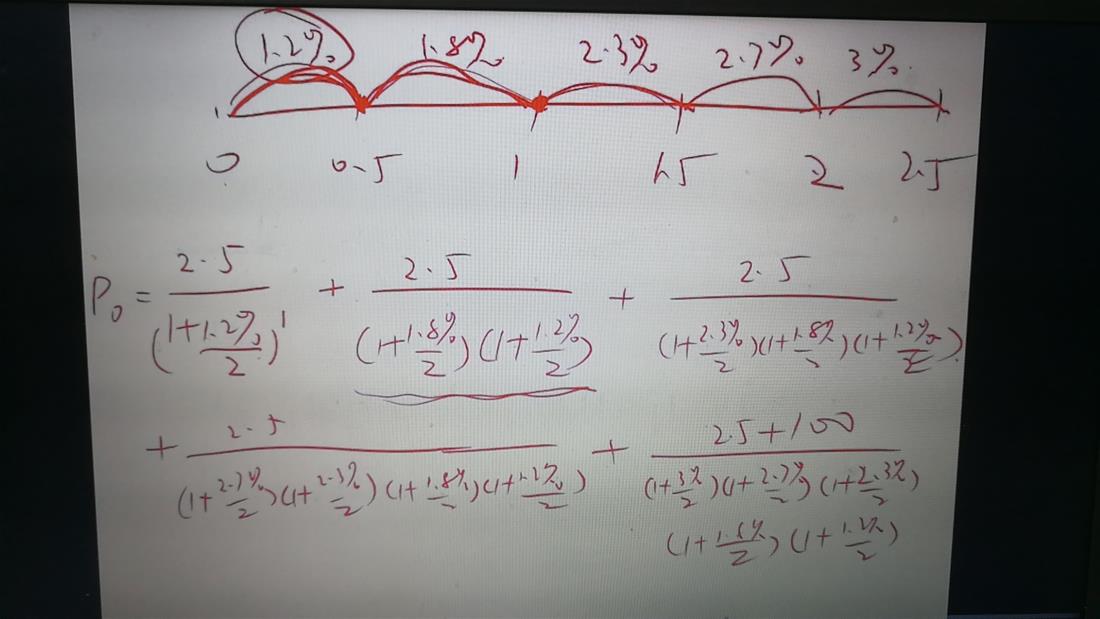 1.2% 1.8% 2.3% 2.7% 3%
0 0.5 1 1.5 2 2.5
P₀ = 2.5/(1+1.2%/2)¹ + 2.5/(1+1.8%/2)(1+1.2%/2) + 2.5/(1+2.3%/2)(1+1.8%/2)(1+1.2%/2)
+ 2.5/(1+2.7%/2)(1+2.3%/2)(1+1.8%/2)(1+1.2%/2) + 2.5+100/(1+3%/2)(1+2.7%/2)(1+2.3%/2)
(1+1.8%/2)(1+1.2%/2)